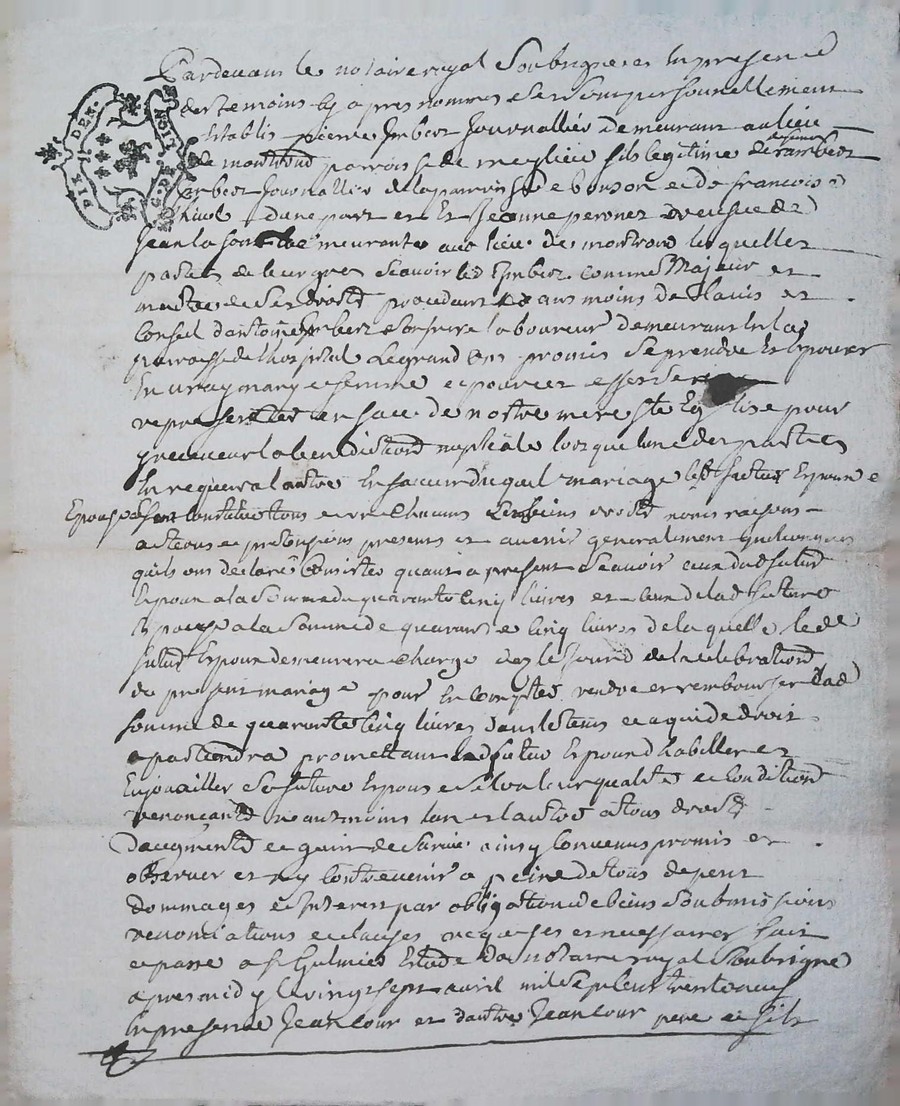 Pardevant le notaire royal Soubsigné et En presence
des temoins cy apres nommes se sont personnellement
Establis pierre Imbert Journallier demeurant au lieu
de montrond parroisse de meylieu fils legitime de deffunct rambert
Imbert Journallier de la parroisse de bonson et de francoise
d'une part et Et Jeanne peronet veufue de
Jean la font demeurante au lieu de montrond lesquelles
parties de leur gres scauoir led Imbert comme Majeur et
maitre de ses droitd procedant neansmoins de l'auis et
Conseil d'antoine Imbert son frere laboureur demeurant En la
parroisse de l'hospital Legrand ont promis se prendre Et Epouser
En uray mary et femme et pour cet effet de se
representer En face de nostre mere ste Eglise pour
y receuoir la benedictiond nuptiale lorsque lune des parties
En requera l'autre En faueur duquel mariage lesd futurs Epoux et
Epouse se sont Constitues tous et un Chacuns Leurs biens droitd noms raisons
actions et pretensions presents et auenir generalement quelconques
quils ont declaré Consister quant a present scauoir ceux dud futur
Epoux a la somme de quarante Cinq liures et Ceux de lad future
Epouse a la somme de quarante Cinq liures de laquelle le d
futur Epoux demeurera Chargé des le Jourd de la celebrationd
du present mariage pour En Compter rendre et rembourser lad
somme de quarante Cinq liures dans le tems et a qui de droit
apartiendra promettant led futur Epoux d'habiller et
Enjouailler sa future Epouse selon leur qualité et Conditiond
renoncantd neantmoins l'un et l'autre a tous droitd
d'augmentd et gain de suruie ainsy Conuenus promis et
obseruer et n'y Contreuenir a peine de tous depens
dommages et Interest par obligation de biens soubmissions
renonciations et clauses requises et necessaires fait
et passé a st Galmier Etude du notaire royal Soubsigné
apres midy le vingt sept auril mil sept cent trente neuf
En presence Jean Cour et d'autre Jean Cour pere et fils
DIX DEN.
G. DE LION